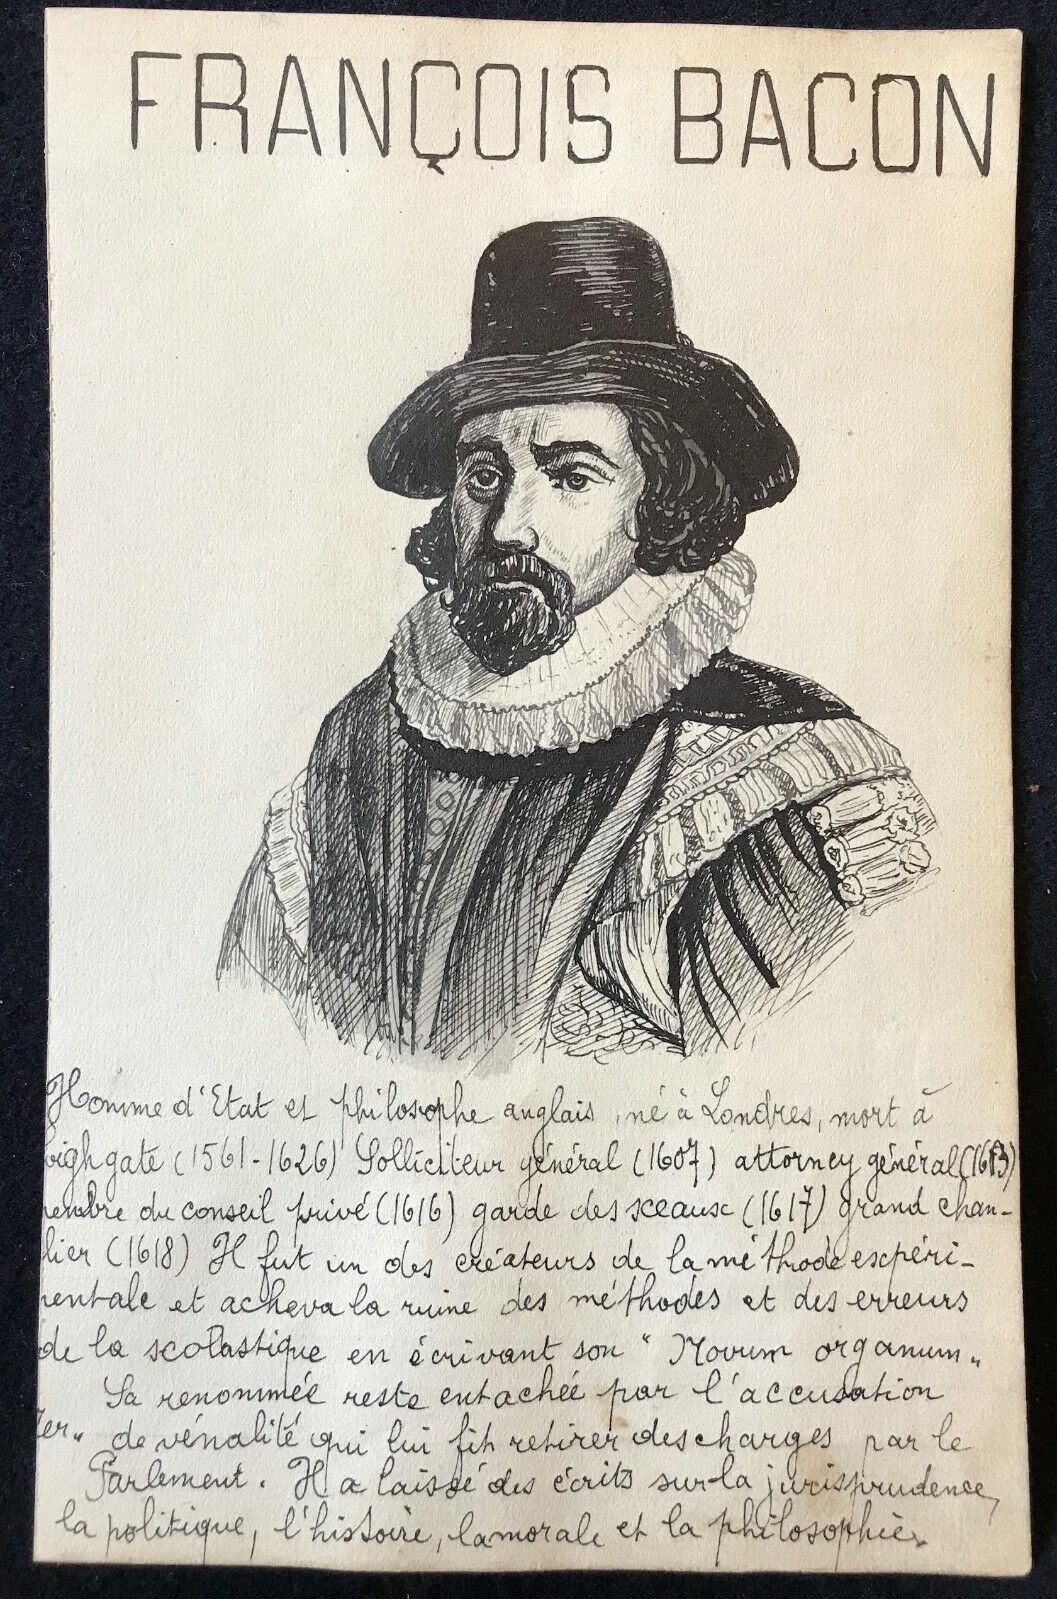 FRANÇOIS BACON
Homme d'Etat et philosophe anglais, né à Londres, mort à
highgate (1561-1626) Solliciteur général (1607) attorney général (1613)
membre du conseil privé (1616) garde des sceaux (1617) grand chan-
lier (1618) Il fut un des créateurs de la méthode expéri-
mentale et acheva la ruine des méthodes et des erreurs
de la scolastique en écrivant son "Novum organum"
Sa renommée reste entachée par l'accusation
de vénalité qui lui fit retirer des charges par le
Parlement. Il a laissé des écrits sur la jurisprudence,
la politique, l'histoire, la morale et la philosophie.